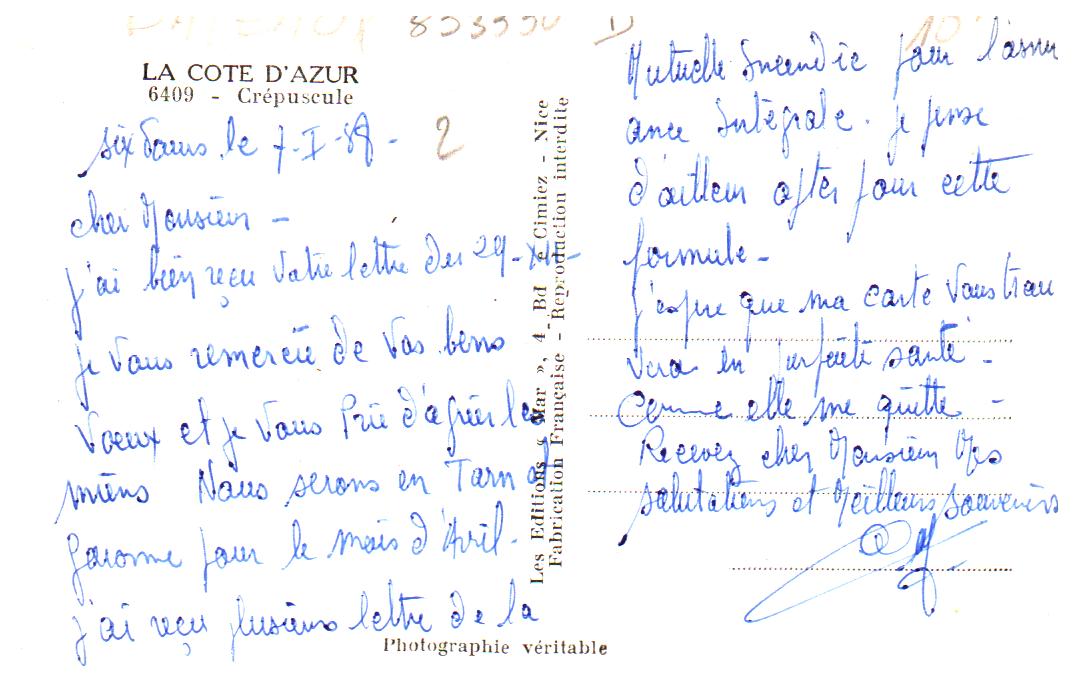 853550 D
10
LA COTE D'AZUR
6409 - Crépuscule
six Fours le 7-I-58 - 2
cher Monsieur -
j'ai bien reçu votre lettre du 29-XII-
je vous remercie de vos bons
voeux et je vous Prie d'agréer les
miens Nous serons en Tarn et
garonne pour le mois d'Avril.
j'ai reçu plusieurs lettre de la
Photographie véritable
Les Editions « Mar », 4, Bd de Cimiez - Nice
Fabrication Française - Reproduction interdite
Mutuelle Incendie pour l'assur
ance Intégrale. je pense
d'ailleur opter pour cette
formule -
j'espere que ma carte vous trou
vera en parfaite santé -
Comme elle me quitte -
Recevez cher Monsieur Mes
salutations et Meilleurs souvenirs